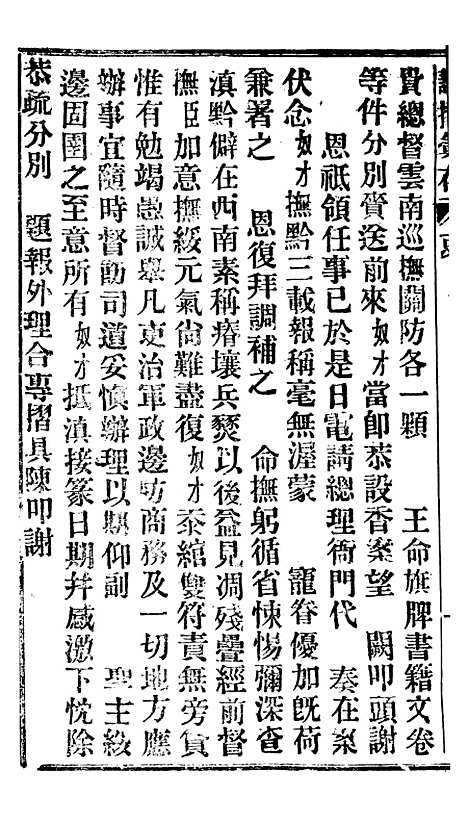 貴總督雲南巡撫關防各一顆　　王命旗牌書籍文卷
等件分別賫送前來奴才當即恭設香案望　闕叩頭謝
恩祇領任事已於是日電請總理衙門代　　奏在案
伏念奴才撫黔三載報稱毫無渥蒙　　寵眷優加旣荷
兼署之　　恩復拜調補之　　命撫躬循省悚惕彌深查
滇黔僻在西南素稱瘠壤兵燹以後益見凋殘疊經前督
撫臣加意撫綏元氣尙難盡復奴才忝綰雙符責無旁貸
惟有勉竭愚誠舉凡吏治軍政邊防商務及一切地方應
辦事宜隨時督飭司道妥愼辦理以期仰副　　聖主綏
邊固圉之至意所有奴才抵滇接篆日期幷感激下忱除
恭疏分別　　題報外理合專摺具陳叩謝